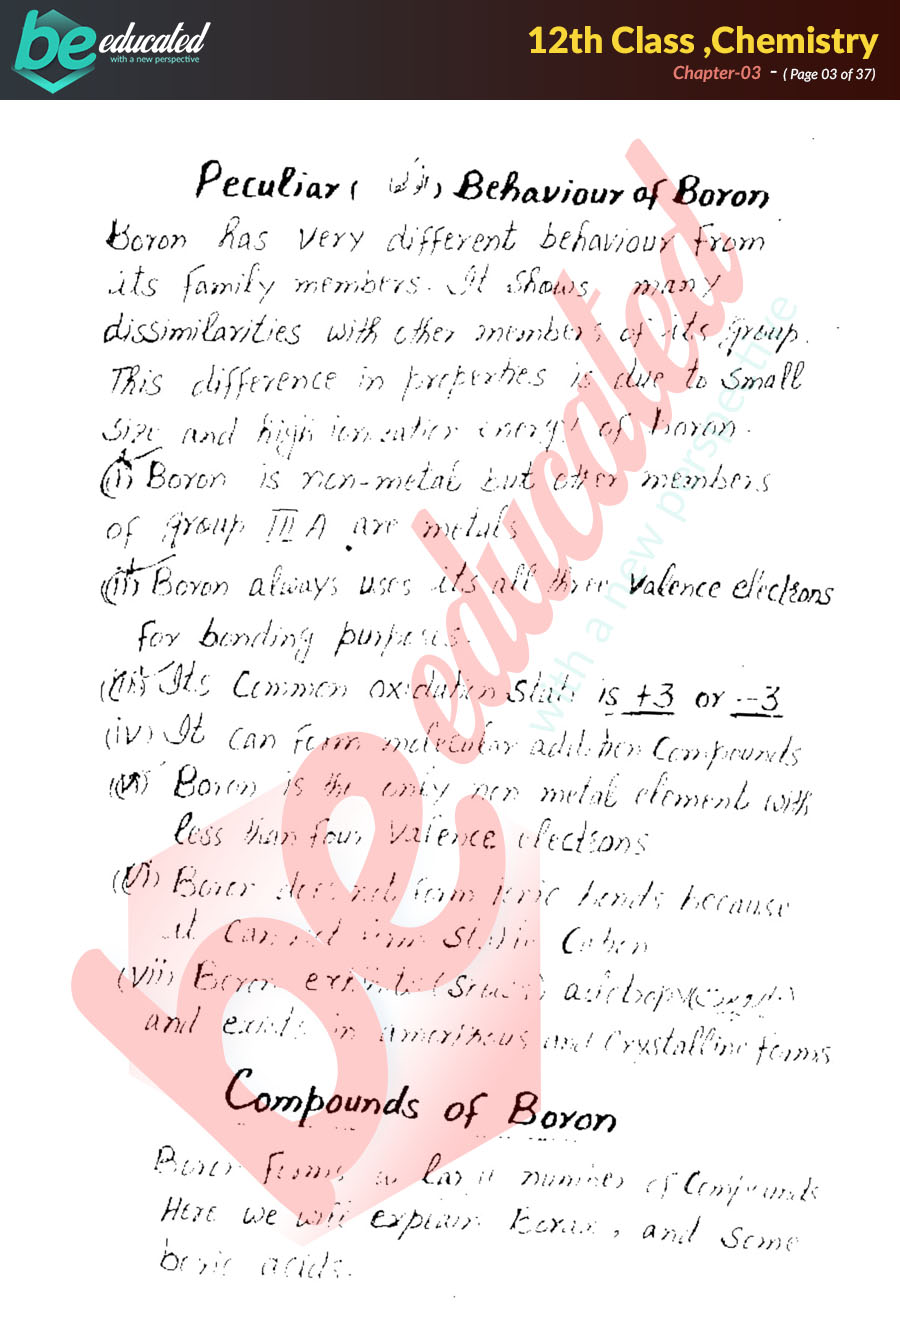 be educated
with a new perspective
12th Class ,Chemistry
Chapter-03 - ( Page 03 of 37)
Peculiar ( ) Behaviour of Boron
Boron has very different behaviour from
its family members. It shows many
dissimilarities with other members of its group.
This difference in properties is due to small
size and high ionization energy of boron.
(i) Boron is non-metal but other members
of group III A are metals
(ii) Boron always uses its all three valence electrons
for bonding purposes.
(iii) Its Common oxidation state is +3 or -3
(iv) It can form molecular addition Compounds
(v) Boron is the only non metal element with
less than four valence electrons
(vi) Boron does not form ionic bonds because
it cannot form
(vii) Boron
and exists in and Crystalline forms
Compounds of Boron
Boron forms a large number of Compounds
Here we will explain Borax, and some
boric acids.
be educated
with a new perspective